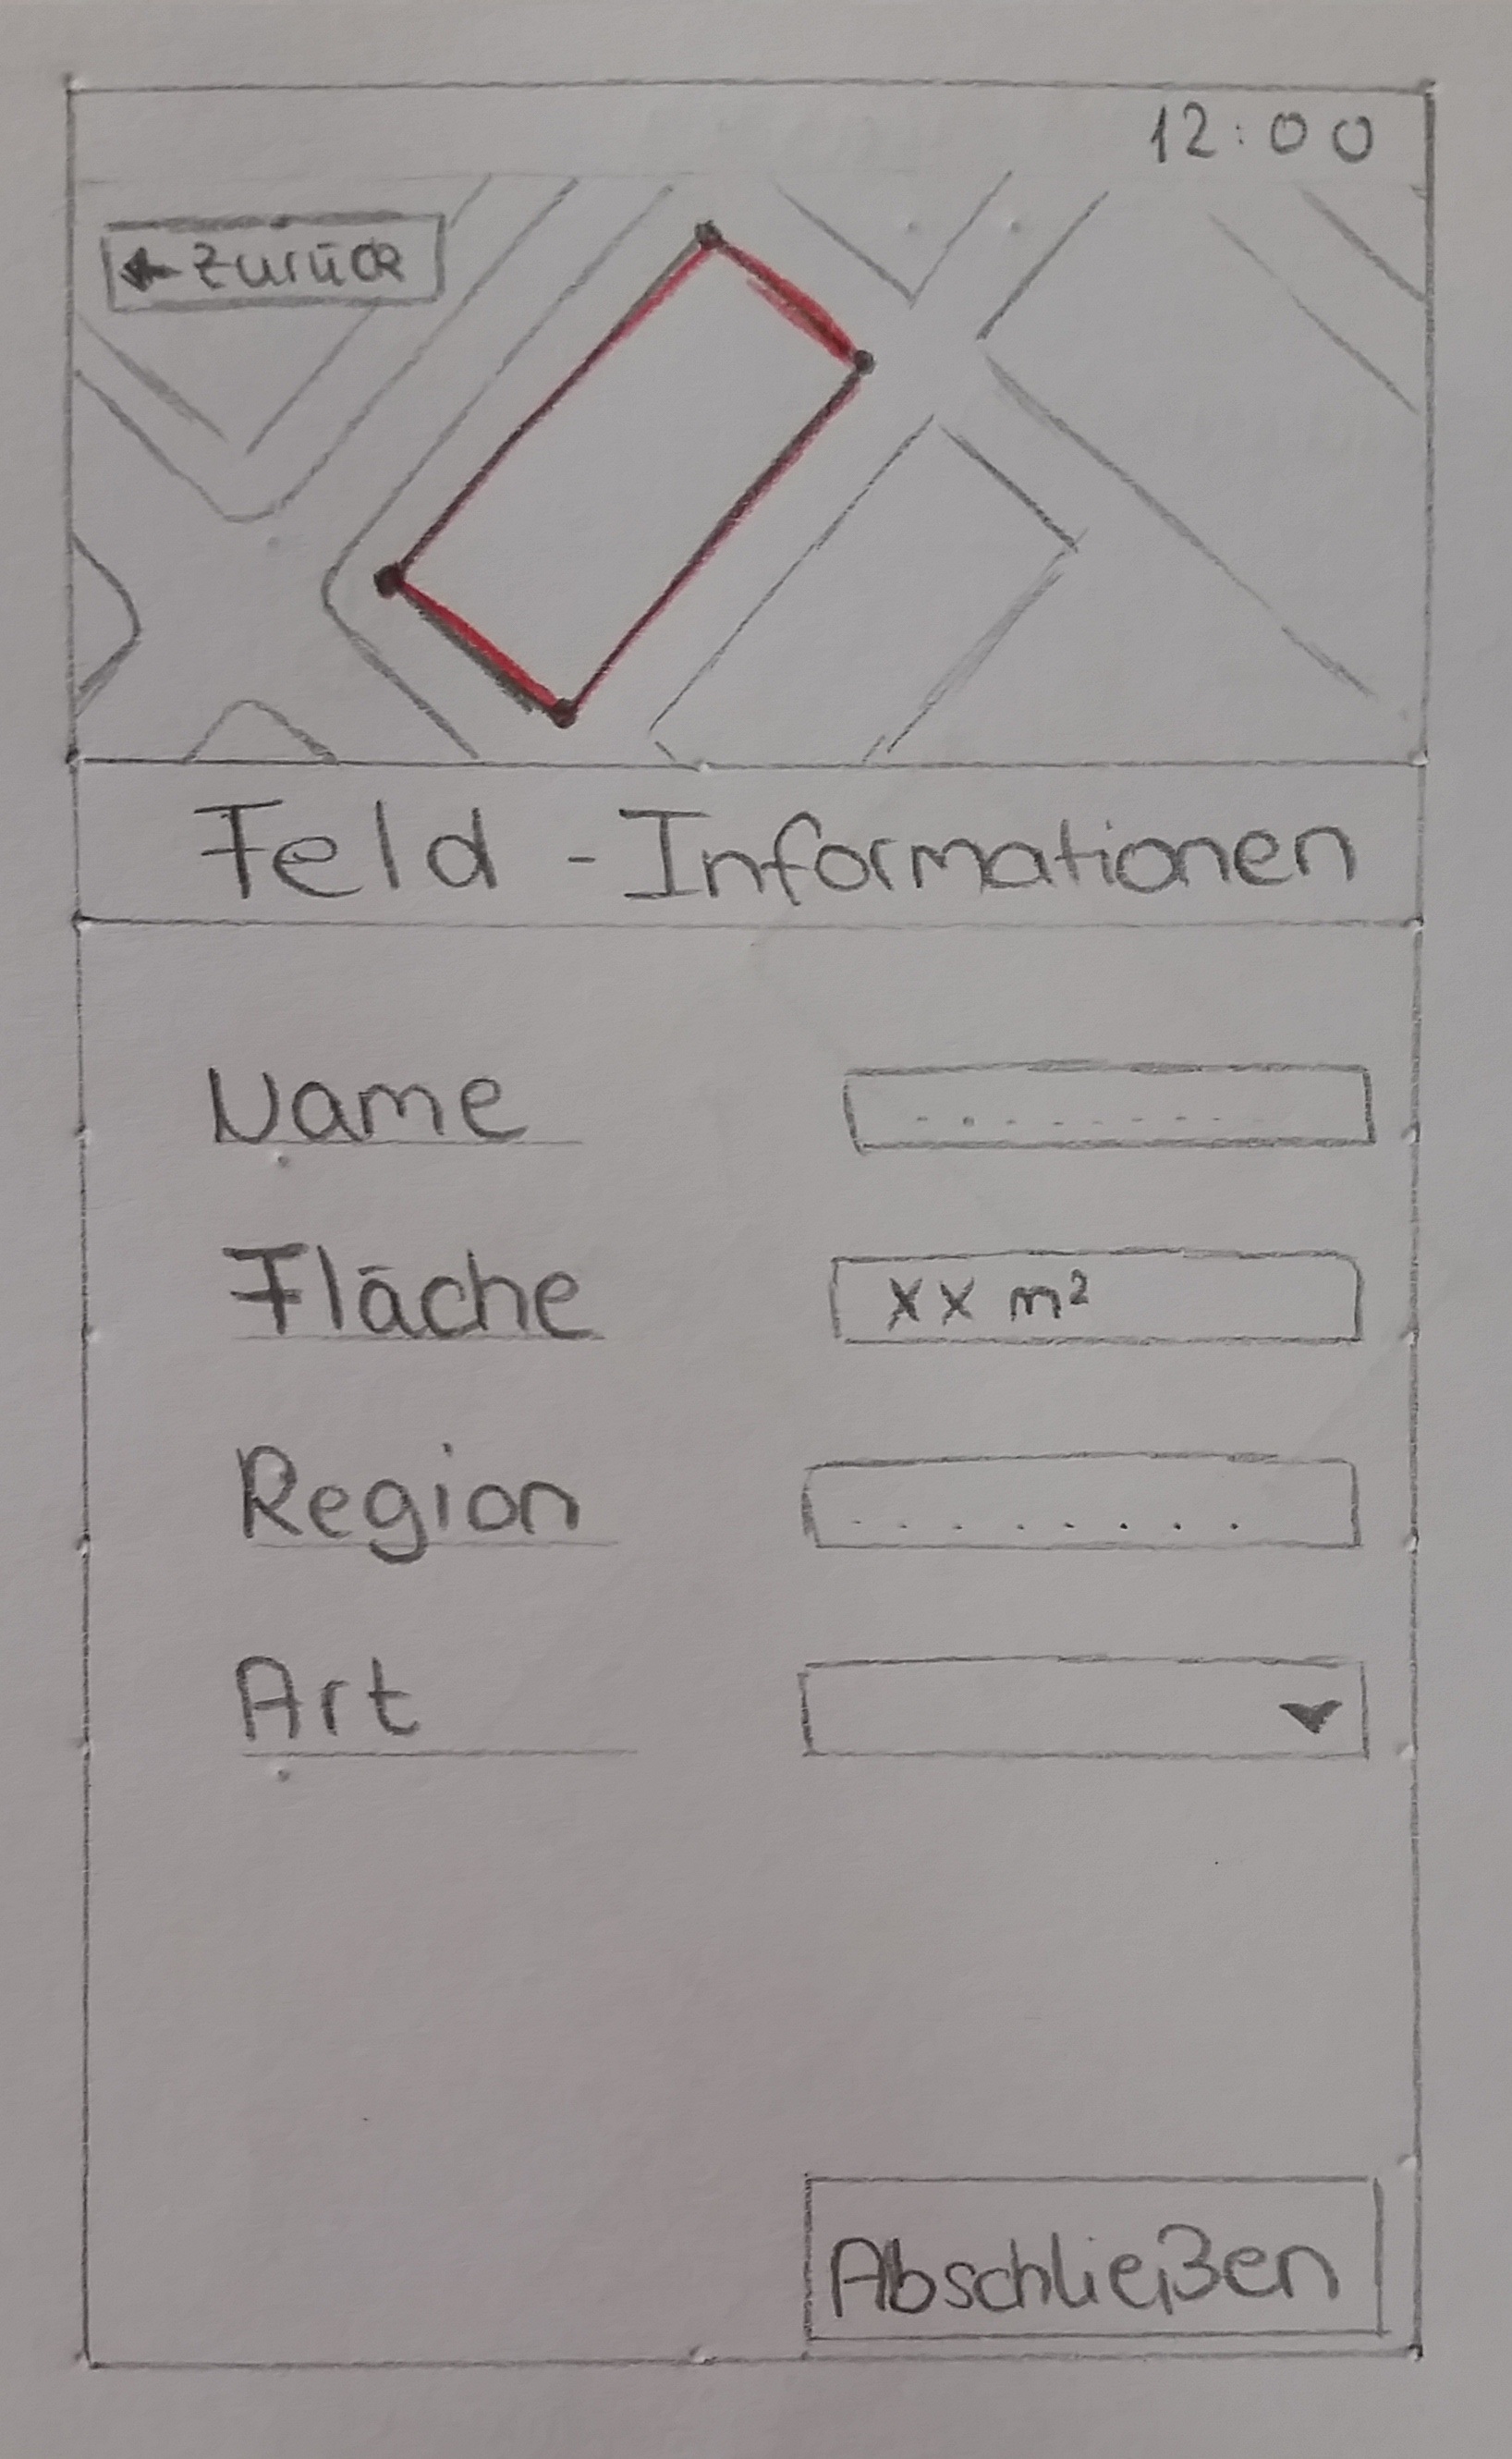 12:00
← Zurück
Feld - Informationen
Name
Fläche xx m²
Region
Art
Abschließen